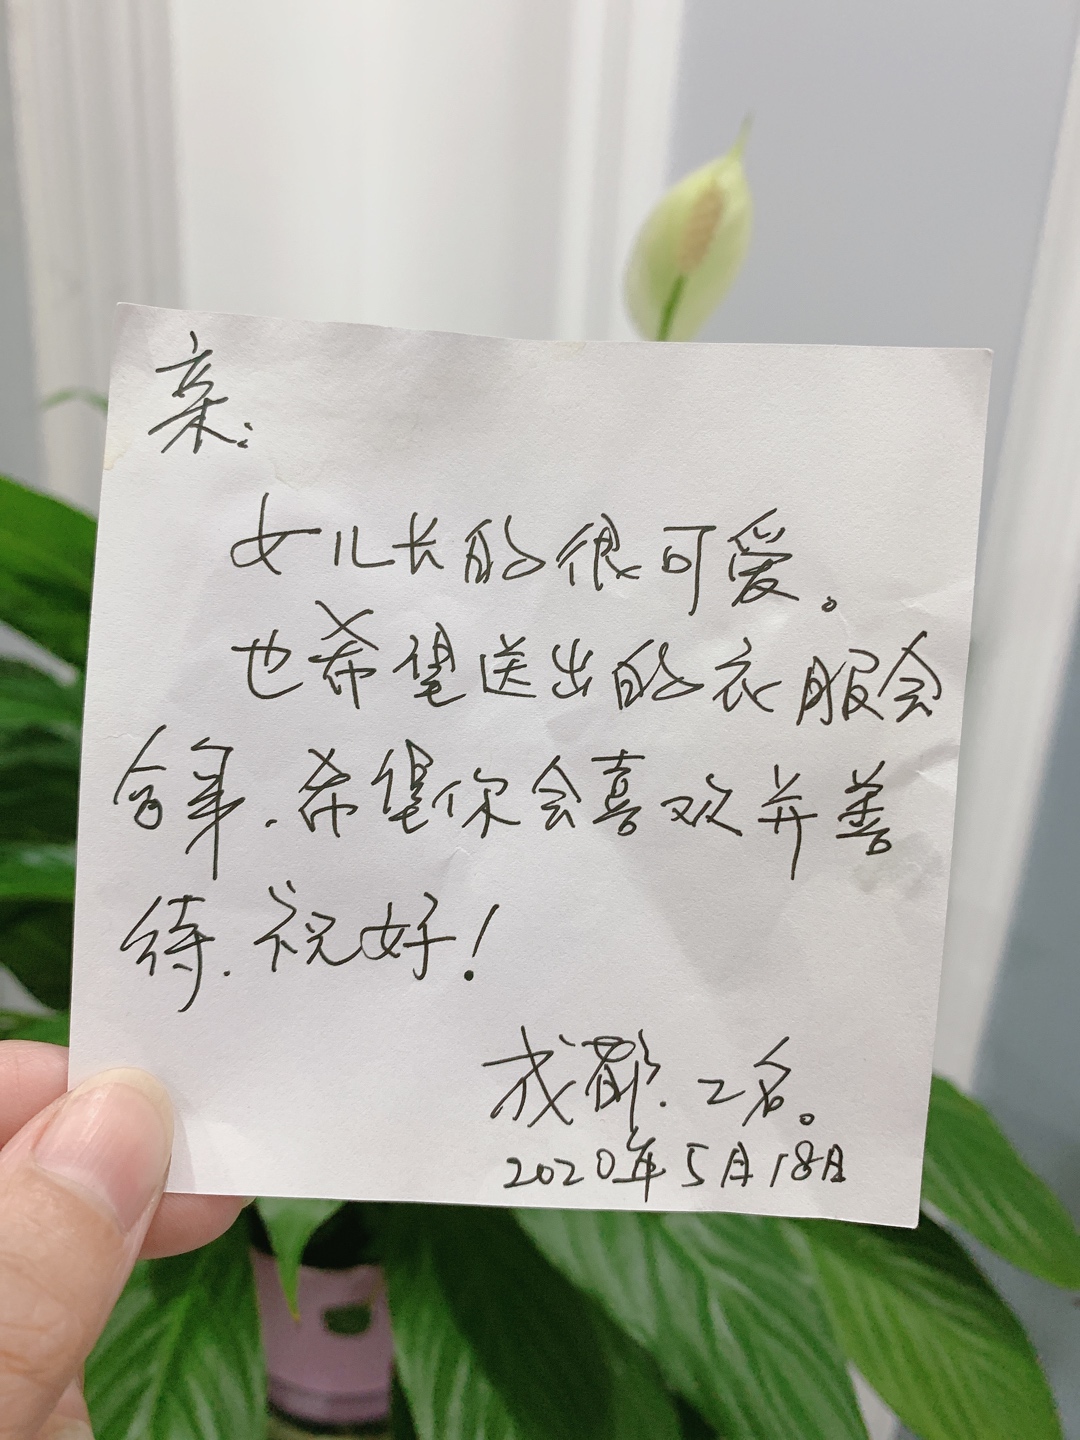 亲:
女儿长的很可爱。
也希望送出的衣服会
合身.希望你会喜欢并善
待.祝好!
成都.乙名。
2020年5月18日